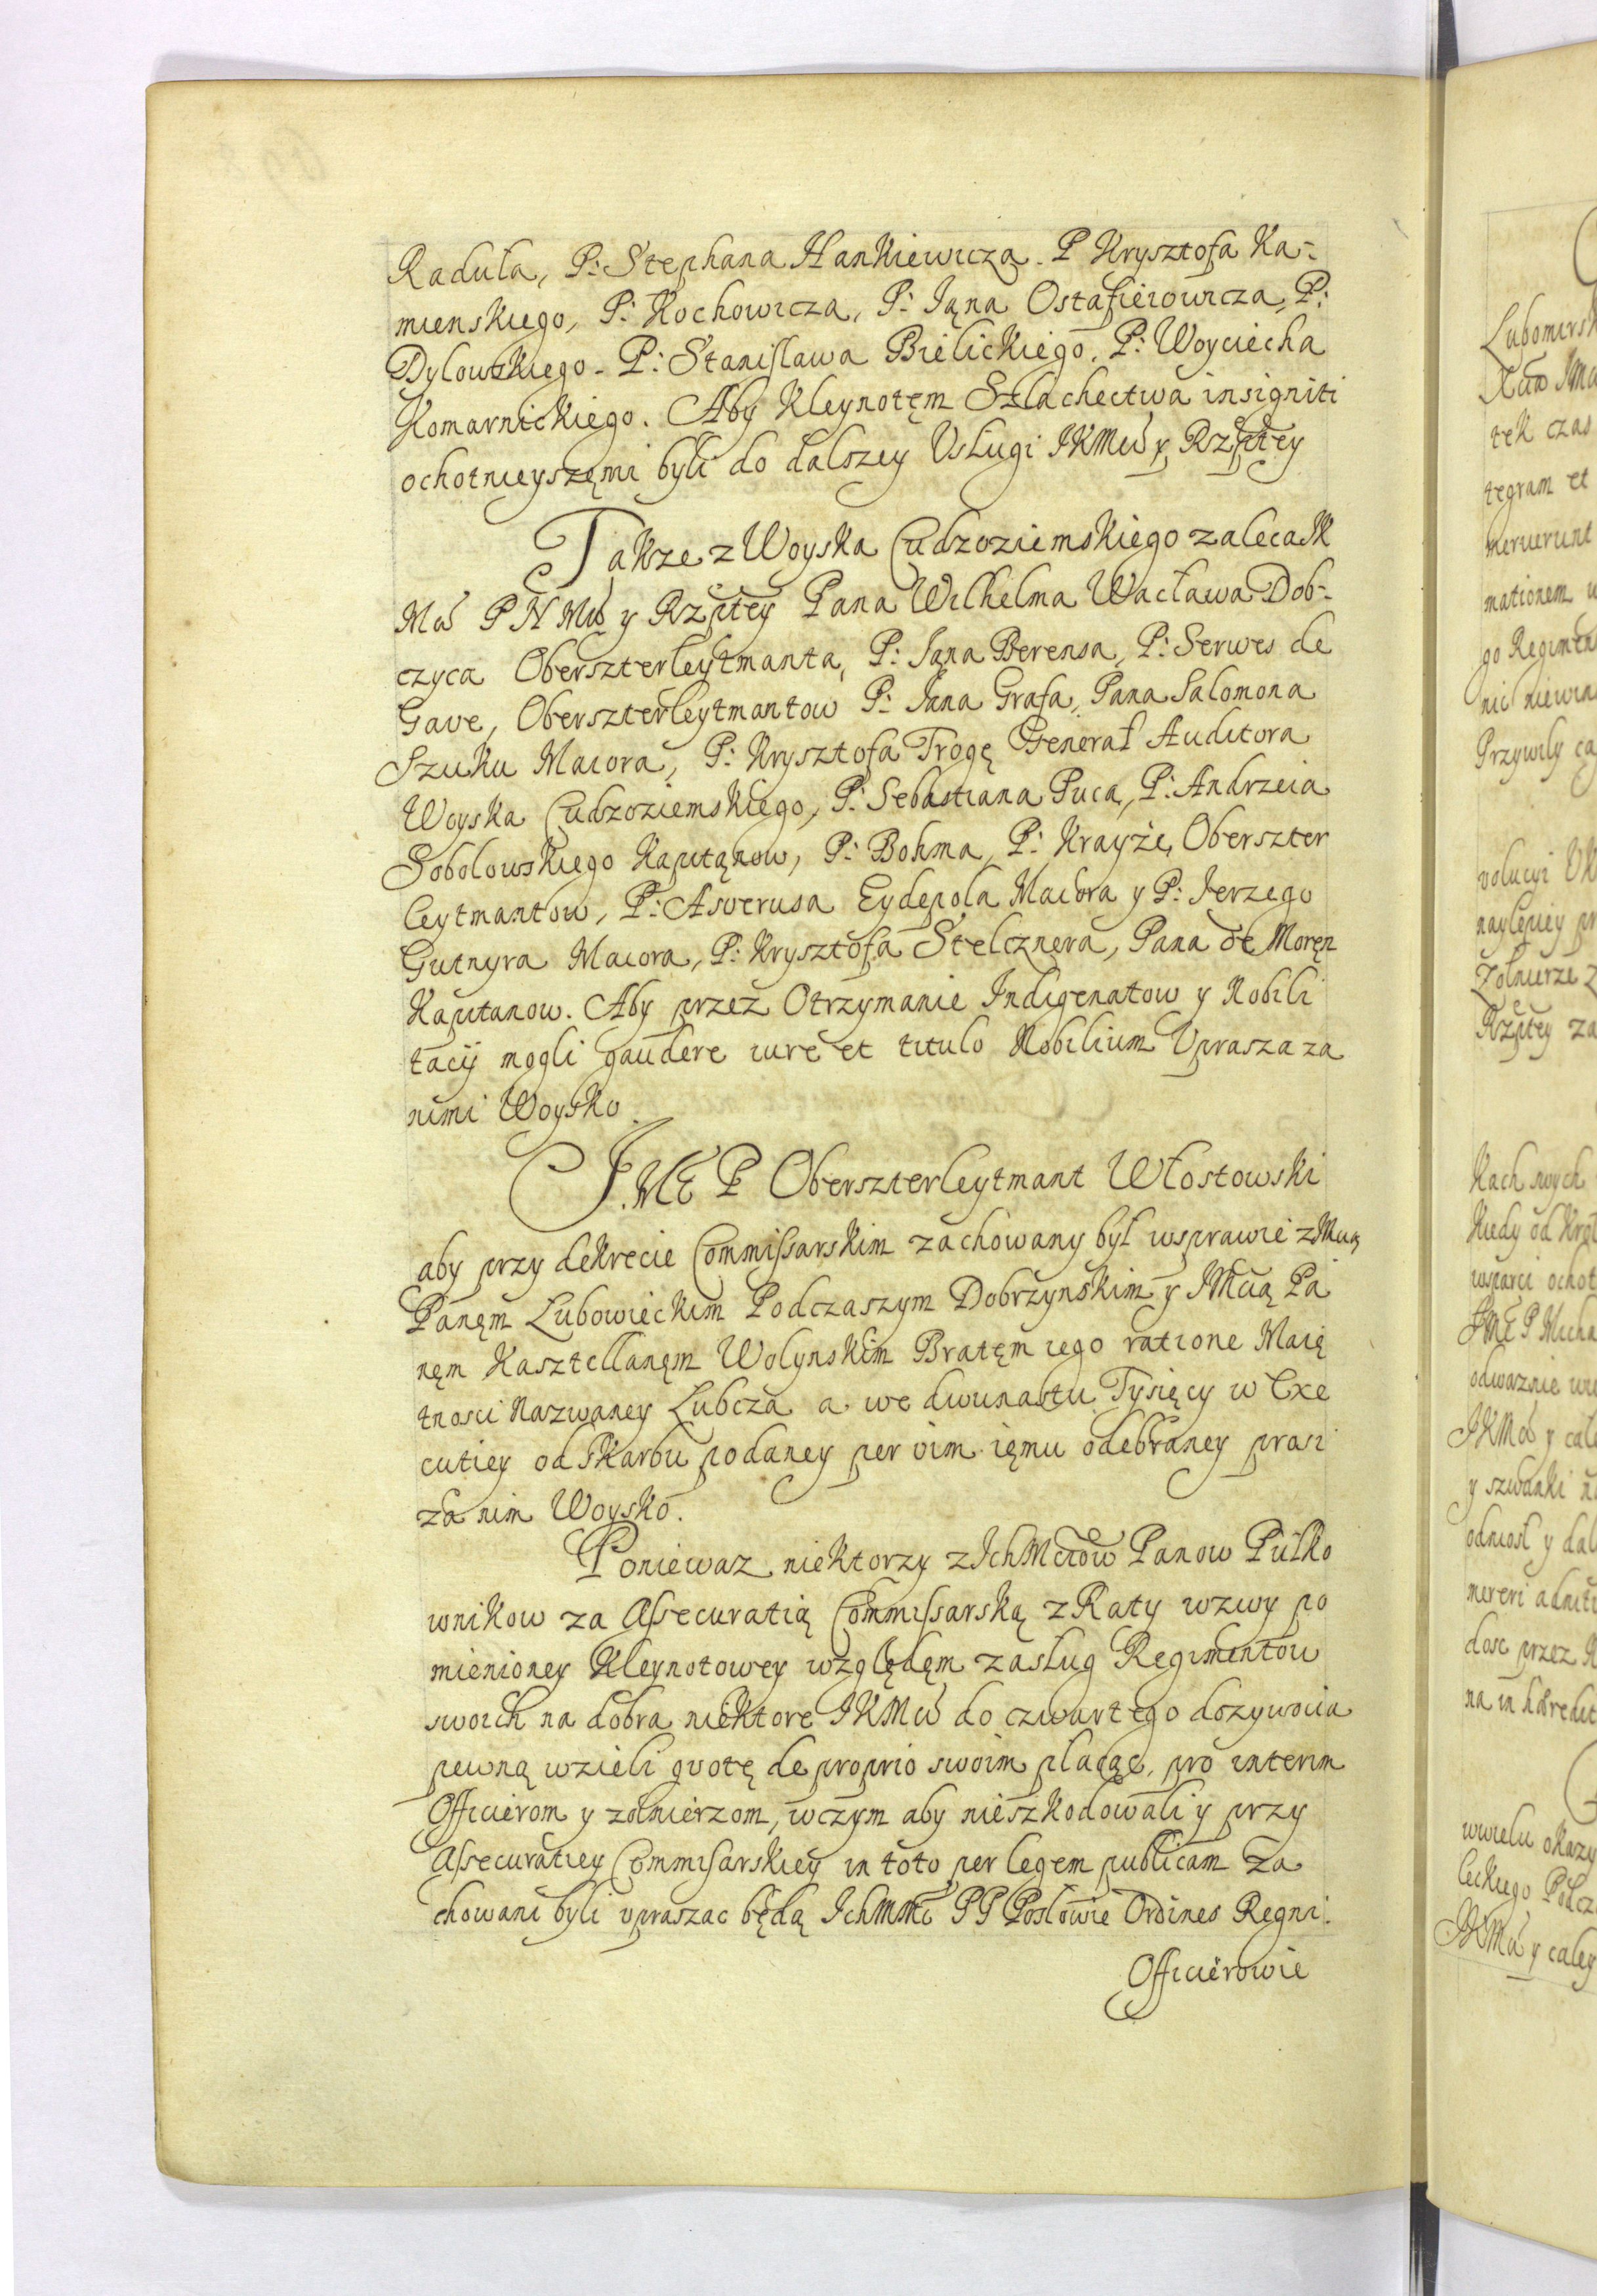 Raduła, P: Stephana Hankiewicza. P Krysztofa Ka-
mienskiego, P: Kochowicza, P: Iąna Ostafieiowicza, P:
Dylowskiego. P: Stanisława Bielickiego. P: Woyciecha
Komarnickiego. Aby Kleynotęm Szlachectwa insigniti
ochotnieyszęmi byli do dalszey Usługi JKMci y Rzptey
Takze z Woyska Cudzoziemskiego zaleca JK
Mci P N Mci y Rzptey Pana Wilhelma Wacława Dob-
czyca Oberszterleytmanta, P: Iąna Berensa, P: Serwes de
Gave, Oberszterleytmantow P: Iana Grafa, Pana Salomona
Szuku Maiora, P: Krysztofa Trogę Generał Auditora
Woyska Cudzoziemskiego, P: Sebastiana Puca, P: Andrzeia
Sobolowskiego Kapitąnow, P: Bohma, P: Krayże, Oberszter
leytmantow, P: Asverusa Eydepola Maiora y P: Jerzego
Gutnyra Maiora, P: Krysztofa Stelcznera, Pana de Moręn
Kapitanow. Aby przez Otrzymanie Indigenatow y Nobili
tacij mogli gaudere iure et titulo Nobilium Uprasza za
nimi Woysko.
J.ME P Oberszterleytmant Włostowski
aby przy dekrecie Commissarskim zachowany był wsprawie z JMcią
Panęm Lubowieckim Podczaszym Dobrzynskim y JMcią Pa
nęm Kasztellanęm Wolynskim Bratęm iego ratione Maię
tnosci Nazwaney Lubcza a we dwunastu Tysięcy w Exe
cutiey od Skarbu podaney per vim ięmu odebraney prosi
za nim Woysko.
Poniewaz niektorzy z IchMciow Panow Pułko
wnikow za Assecuratią Commissarską z Raty wzwy po
mienioney Kleynotowey względęm zasług Regimentow
swoich na dobra niektore JKMci do czwartego dozywocia
pewną wzieli qvotę de proprio swoim płacąc, pro interim
Officierom y zołnierzom, wczym aby nieszkodowali y przy
Assecuratiey Commissarskiey in toto per legem publicam za
chowani byli upraszac będą IchMMci PP Posłowie Ordines Regni.
Officierowie